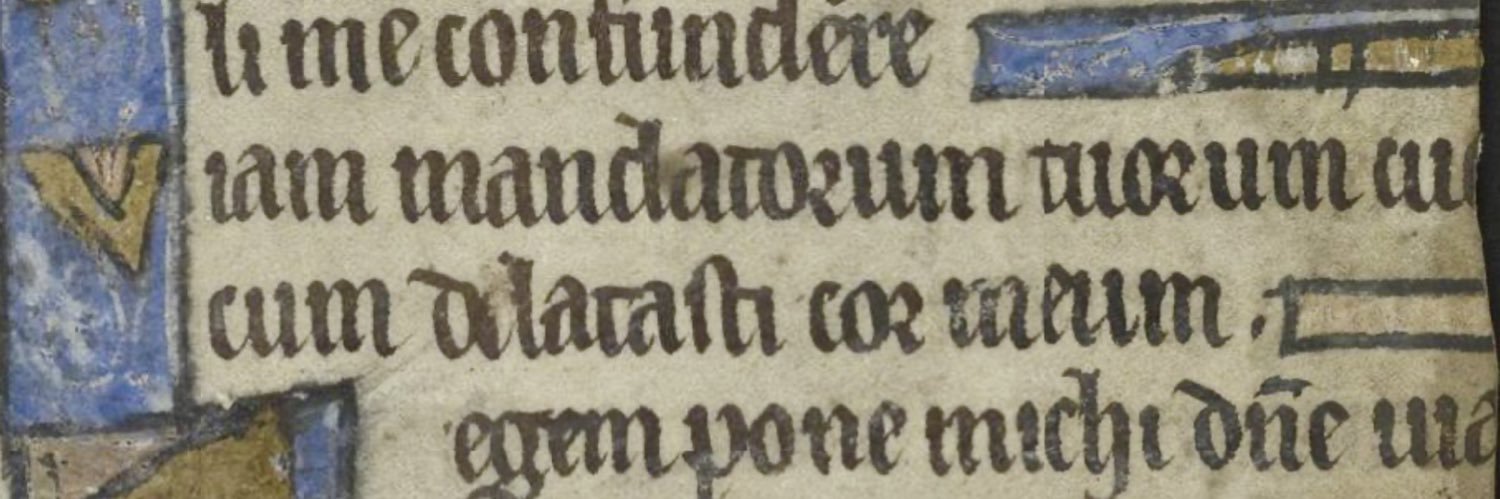 li me confundere
Viam mandatorum tuorum cu
cum dilatasti cor meum.
egem pone michi dn̄e uia